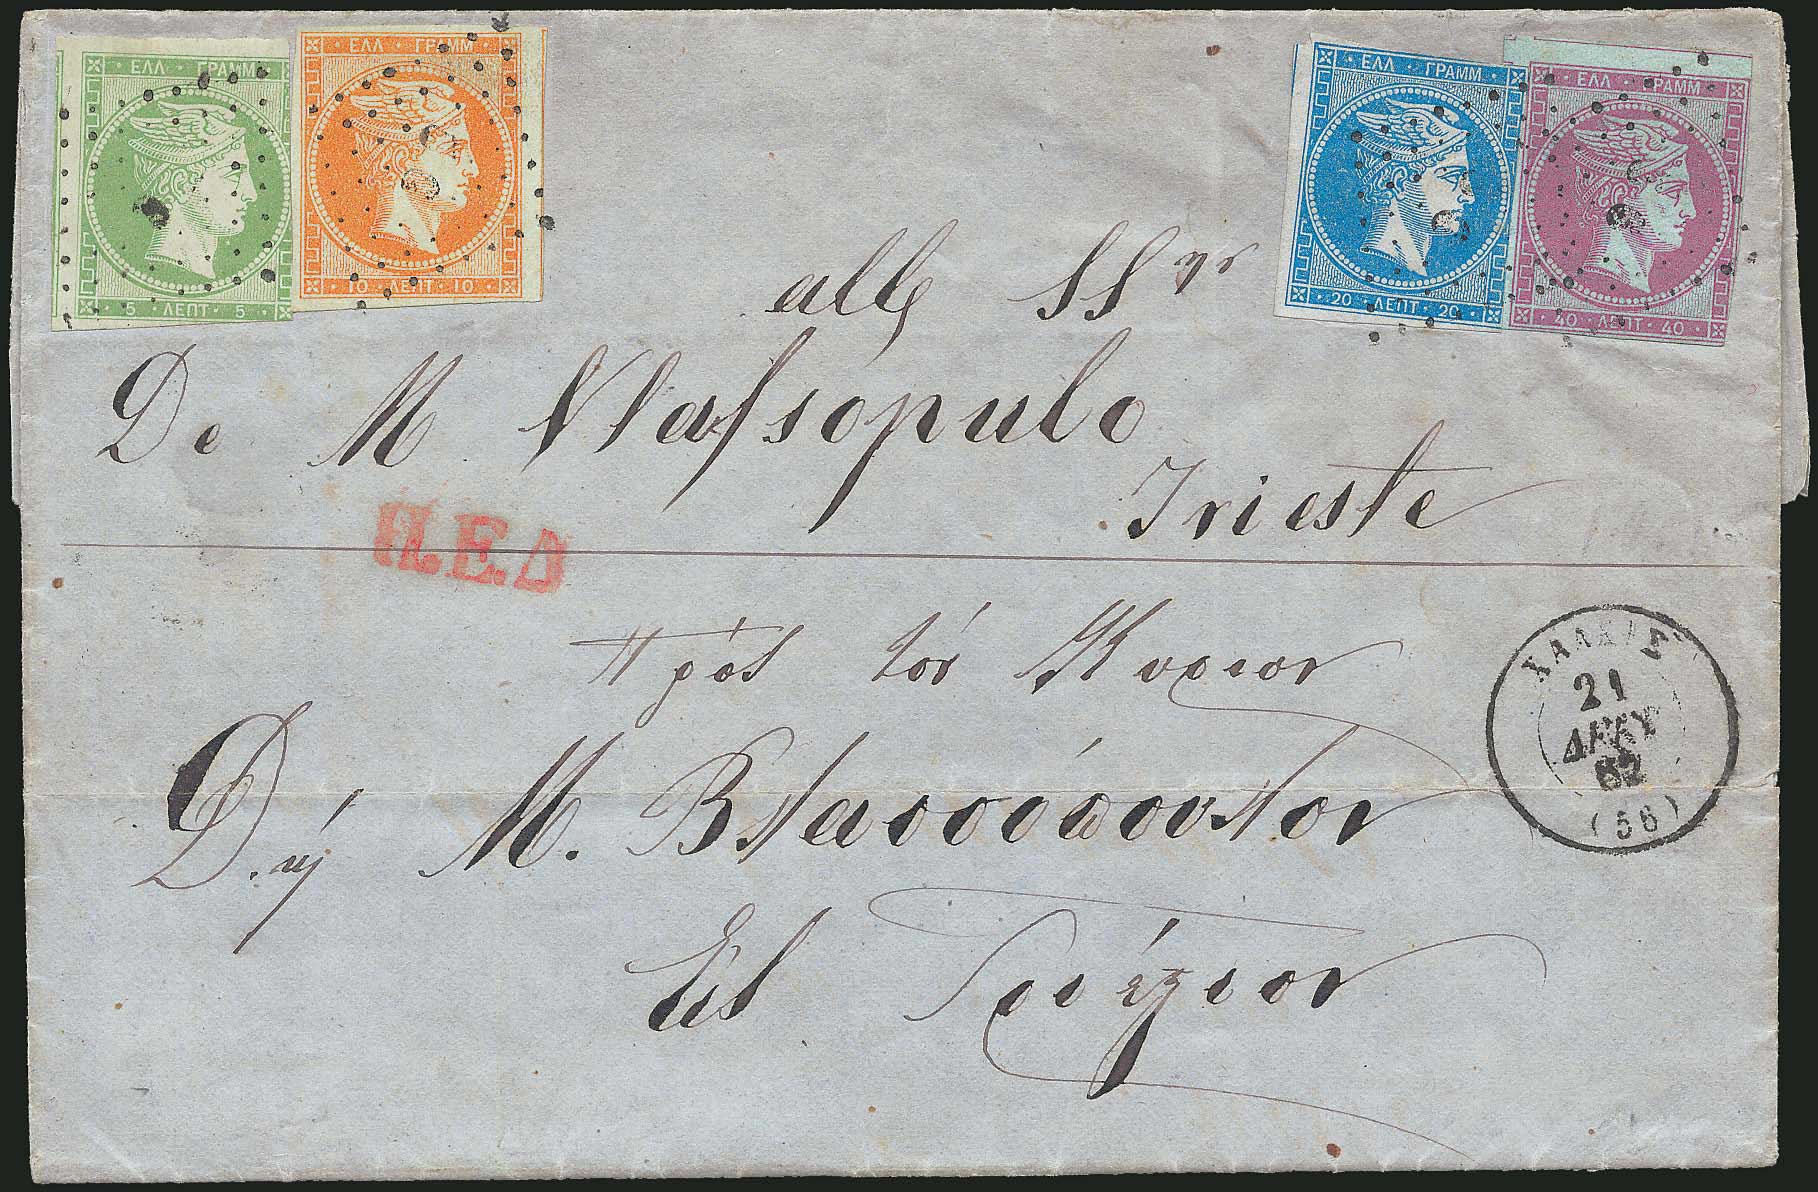 ΕΛΛ · ΓΡΑΜΜ
5 · ΛΕΠΤ · 5
ΕΛΛ · ΓΡΑΜΜ
10 · ΛΕΠΤ · 10
ΕΛΛ · ΓΡΑΜΜ
20 · ΛΕΠΤ · 20
ΕΛΛ · ΓΡΑΜΜ
40 · ΛΕΠΤ · 40
De M Vlassópulo
Trieste
Π.Ε.Δ
Πρὸς τὸν Κύριον
Δ.η M. Βλασσόπουλον
Εἰς Τριέστιον
ΧΑΛΚΙΣ
21
ΔΕΚΥ
62
(56)